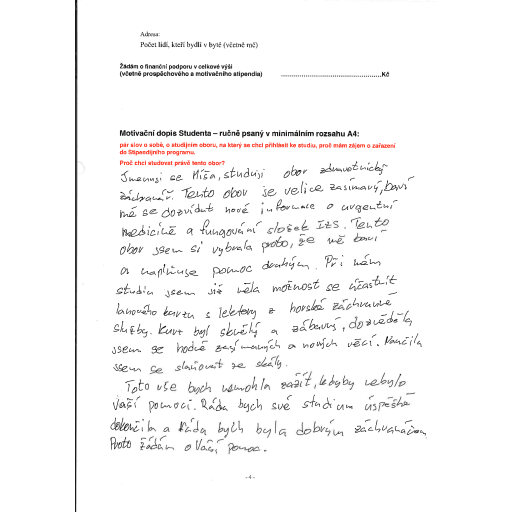 Adresa:
Počet lidí, kteří bydlí v bytě (včetně mě)
Žádám o finanční podporu v celkové výši
(včetně prospěchového a motivačního stipendia) ..........................................................Kč
Motivační dopis Studenta – ručně psaný v minimálním rozsahu A4:
pár slov o sobě, o studijním oboru, na který se chci přihlásit ke studiu, proč mám zájem o zařazení
do Stipendijního programu.
Proč chci studovat právě tento obor?
Jmenuji se Míša, studuji obor zdravotnický
záchranář. Tento obor je velice zajímavý, baví
mě se dozvídat nové informace o urgentní
medicíně a fungování složek IZS. Tento
obor jsem si vybrala proto, že mě baví
a naplňuje pomoc druhým. Při mém
studiu jsem již měla možnost se účastnit
lanového kurzu s lektory z horské záchranné
služby. Kurz byl skvělý a zábavný, dozvěděla
jsem se hodně zajímavých a nových věcí. Naučila
jsem se slaňovat ze skály.
Toto vše bych nemohla zažít, kdyby nebylo
Vaší pomoci. Ráda bych své studium úspěšně
dokončila a ráda bych byla dobrým záchranářem.
Proto žádám o Vaší pomoc.
- 4 -